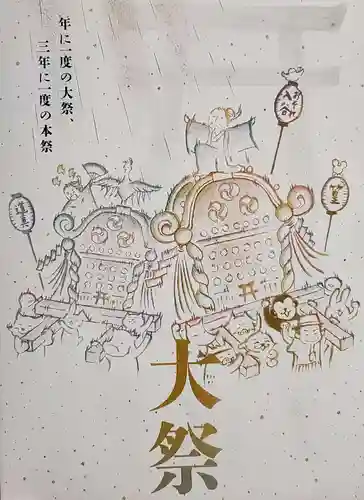 年に一度の大祭、
三年に一度の本祭
道真
大祭